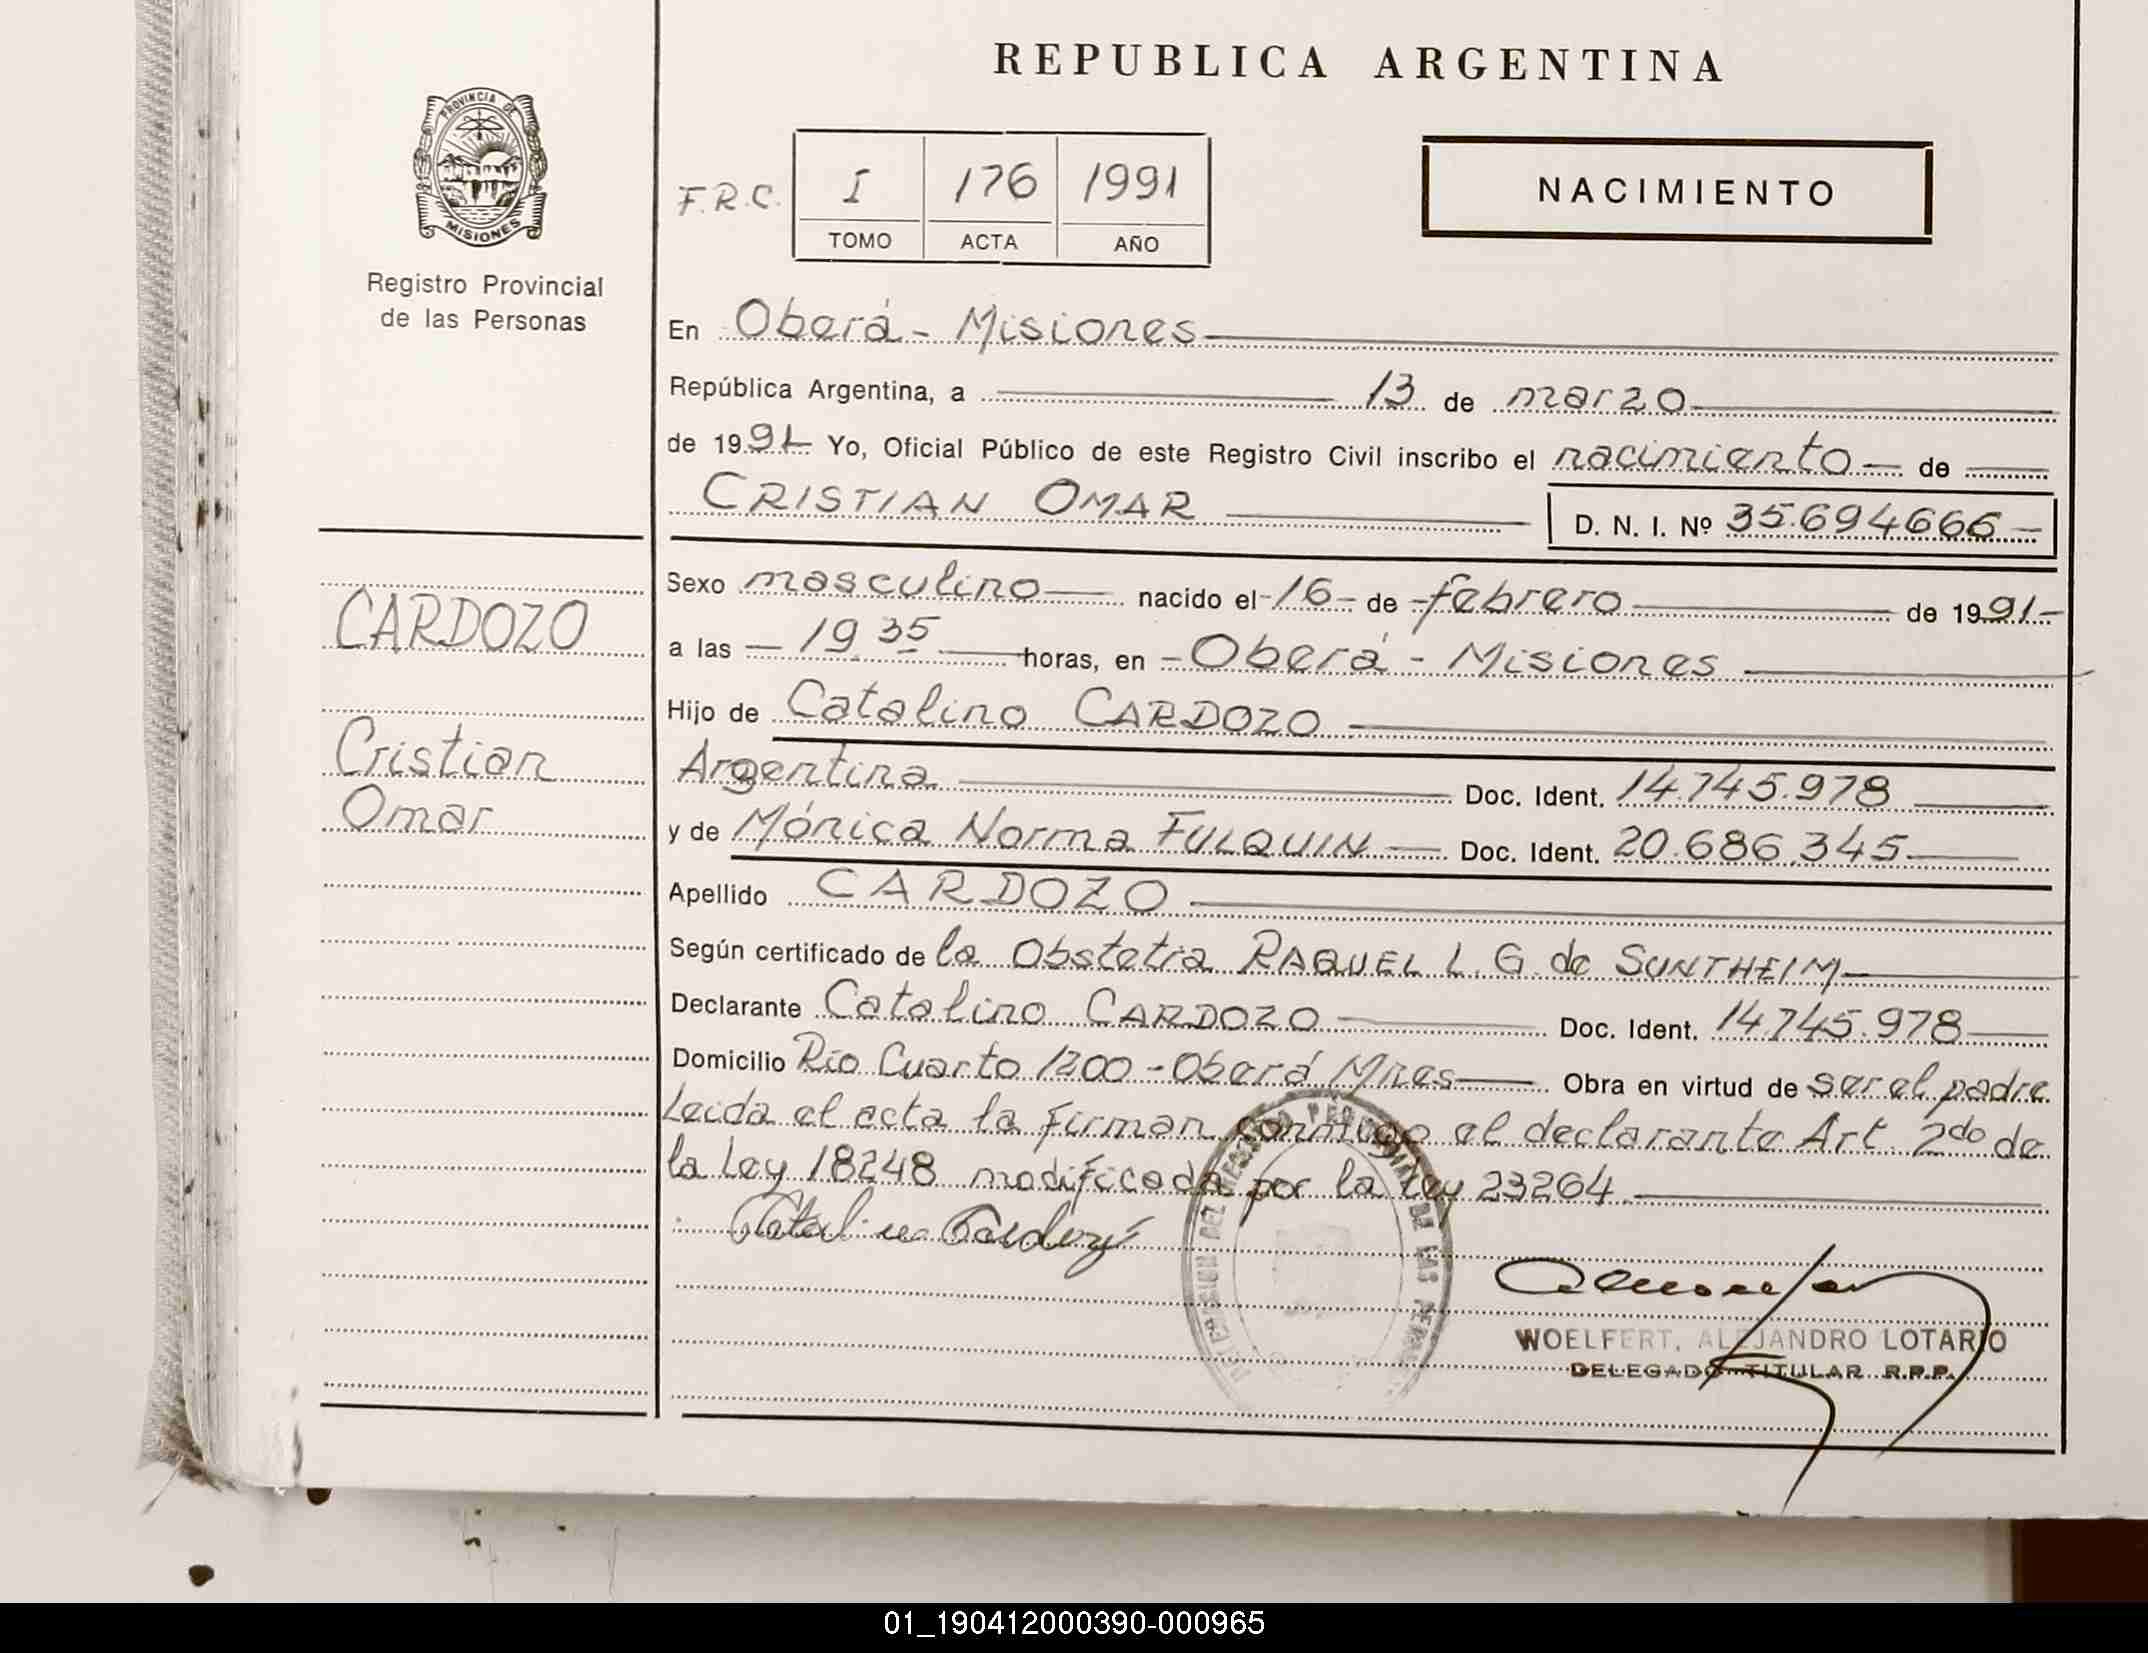 REPUBLICA ARGENTINA
PROVINCIA DE
MISIONES
Registro Provincial
de las Personas
F.R.C.
I 176 1991
TOMO ACTA AÑO
NACIMIENTO
En Oberá - Misiones
República Argentina, a 13 de marzo
de 1991 Yo, Oficial Público de este Registro Civil inscribo el nacimiento de
CRISTIAN OMAR D. N. I. Nº 35.694666
CARDOZO
Cristian
Omar
Sexo masculino nacido el 16 de febrero de 1991
a las 19 35 horas, en Oberá - Misiones
Hijo de Catalino CARDOZO
Argentina Doc. Ident. 14.745.978
y de Mónica Norma FULQUIN Doc. Ident. 20.686.345
Apellido CARDOZO
Según certificado de la Obstetra RAQUEL L. G. de SUNTHEIM
Declarante Catalino CARDOZO Doc. Ident. 14.745.978
Domicilio Río Cuarto 1200 - Oberá Mnes Obra en virtud de ser el padre
Leida el acta la firman conmigo el declarante Art 2do de
la Ley 18248 modificada por la Ley 23264.
Catalino Cardozo
WOELFERT, ALEJANDRO LOTARIO
DELEGADO TITULAR R.P.P.
01_190412000390-000965